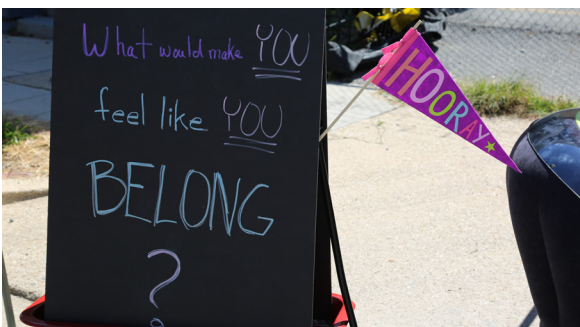 What would make YOU
feel like YOU
BELONG
?
HOORAY